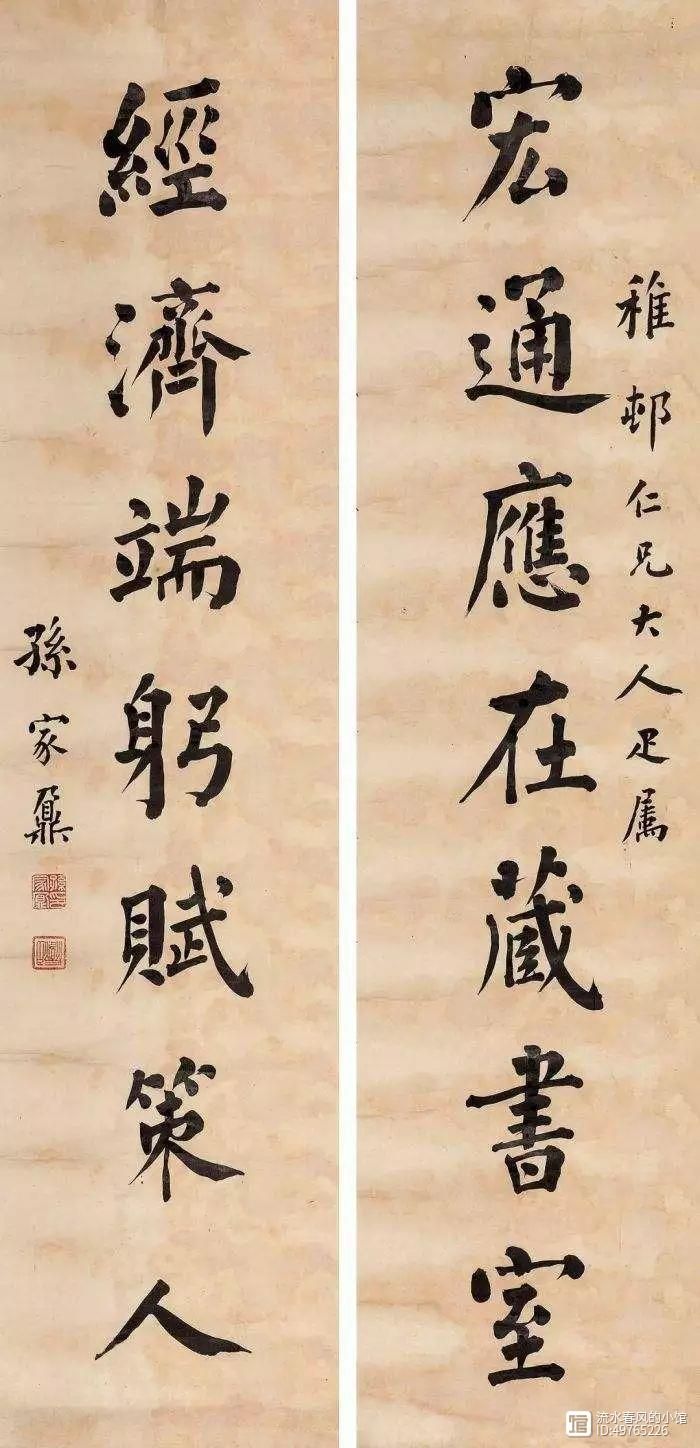 稚邨仁兄大人疋属
宏通應在蔵書室
經濟端躬賦策人
孫家鼐
流水春风的小馆
ID:49765226